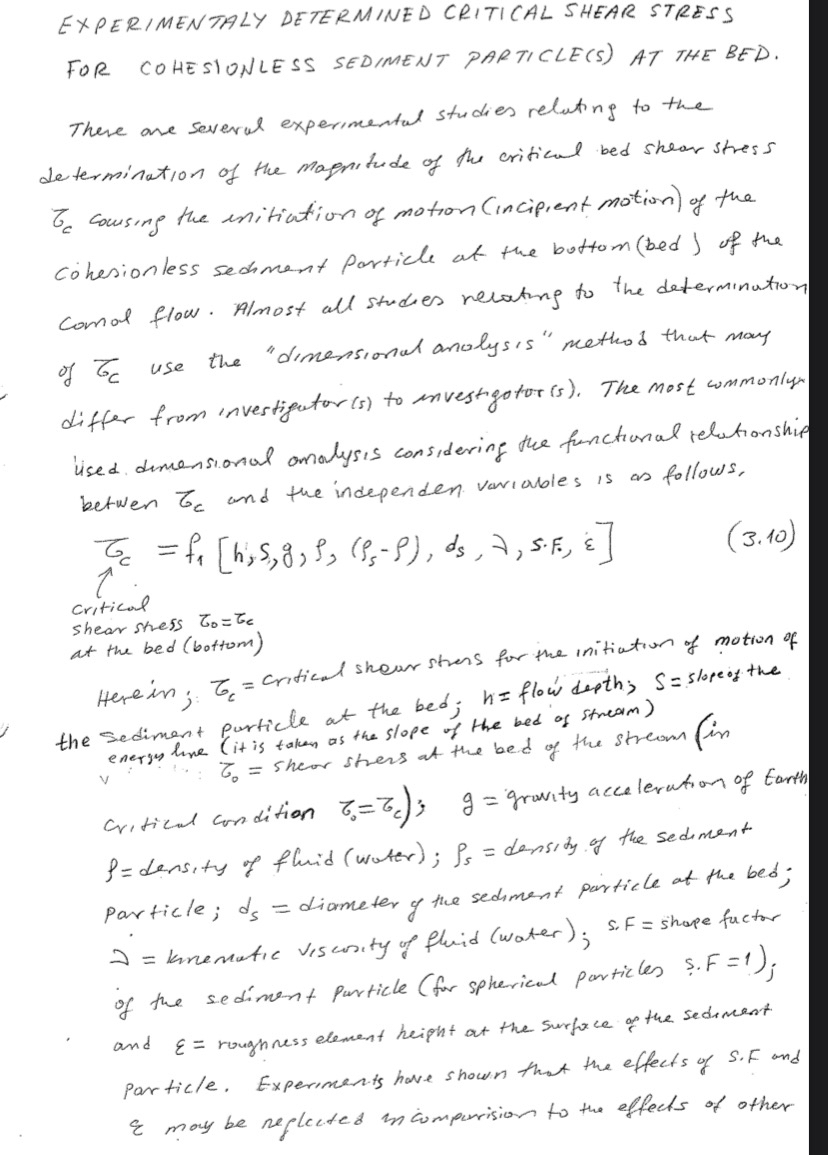 EXPERIMENTALY DETERMINED CRITICAL SHEAR STRESS
FOR COHESIONLESS SEDIMENT PARTICLE(S) AT THE BED.
There are several experimental studies relating to the
determination of the magnitude of the critical bed shear stress
τc causing the initiation of motion (incipient motion) of the
cohesionless sediment particle at the bottom (bed) of the
canal flow. Almost all studies relating to the determination
of τc use the "dimensional analysis" method that may
differ from investigator(s) to investigator(s). The most commonly
used dimensional analysis considering the functional relationship
betwen τc and the independen variables is as follows,
τc = f1 [h, S, g, ρ, (ρs-ρ), ds, ν, S.F., ε] (3.10)
↑
critical
shear stress τo=τc
at the bed (bottom)
Herein; τc = critical shear stress for the initiation of motion of
the sediment particle at the bed; h = flow depth; S = slope of the
energy line (it is taken as the slope of the bed of stream)
τo = shear stress at the bed of the stream (in
critical condition τo=τc); g = gravity acceleration of Earth
ρ = density of fluid (water); ρs = density of the sediment
particle; ds = diameter of the sediment particle at the bed;
ν = kinematic viscosity of fluid (water); S.F = shape factor
of the sediment particle (for spherical particles S.F = 1);
and ε = roughness element height at the surface of the sediment
particle. Experiments have shown that the effects of S.F and
ε may be neglected in comparision to the effects of other